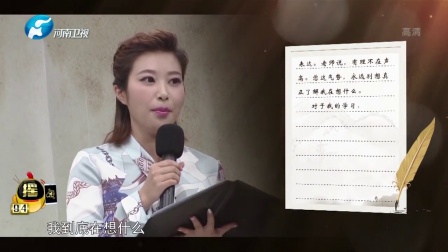 河南卫视
高清
表达。老师说，有理不在声
高。您这气势，永远别想真
正了解我在想什么。
对于我的学习，
摇
94
我到底在想什么